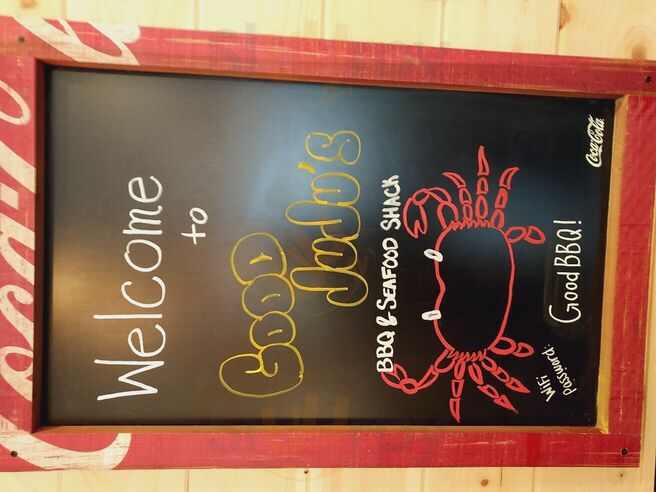 Welcome
to
GOOD
JuJu's
BBQ & SEAFOOD SHACK
WiFi
Password:
GoodBBQ!
Coca-Cola